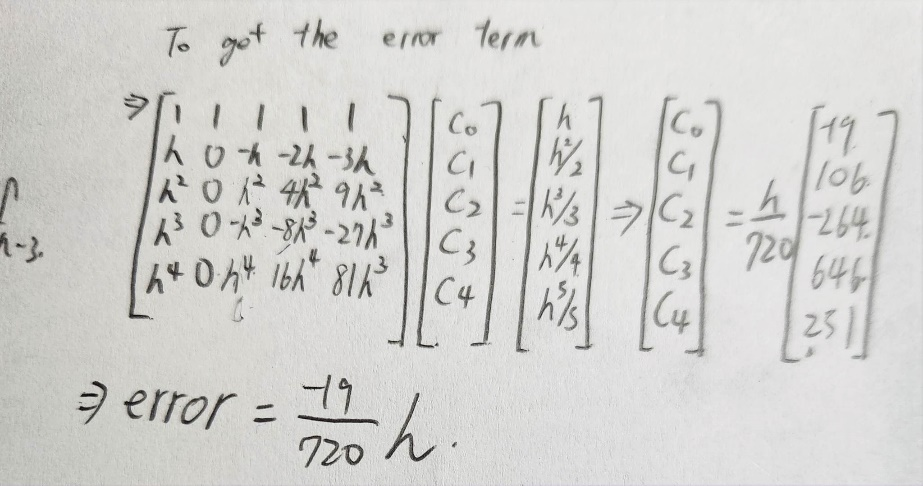 To get the error term
⇒ [1 1 1 1 1; h 0 -h -2h -3h; h² 0 h² 4h² 9h²; h³ 0 -h³ -8h³ -27h³; h⁴ 0 h⁴ 16h⁴ 81h³] [C₀; C₁; C₂; C₃; C₄] = [h; h²/2; h³/3; h⁴/4; h⁵/5] ⇒ [C₀; C₁; C₂; C₃; C₄] = h/720 [-19; 106; -264; 646; 251]
n-3.
⇒ error = -19/720 h.